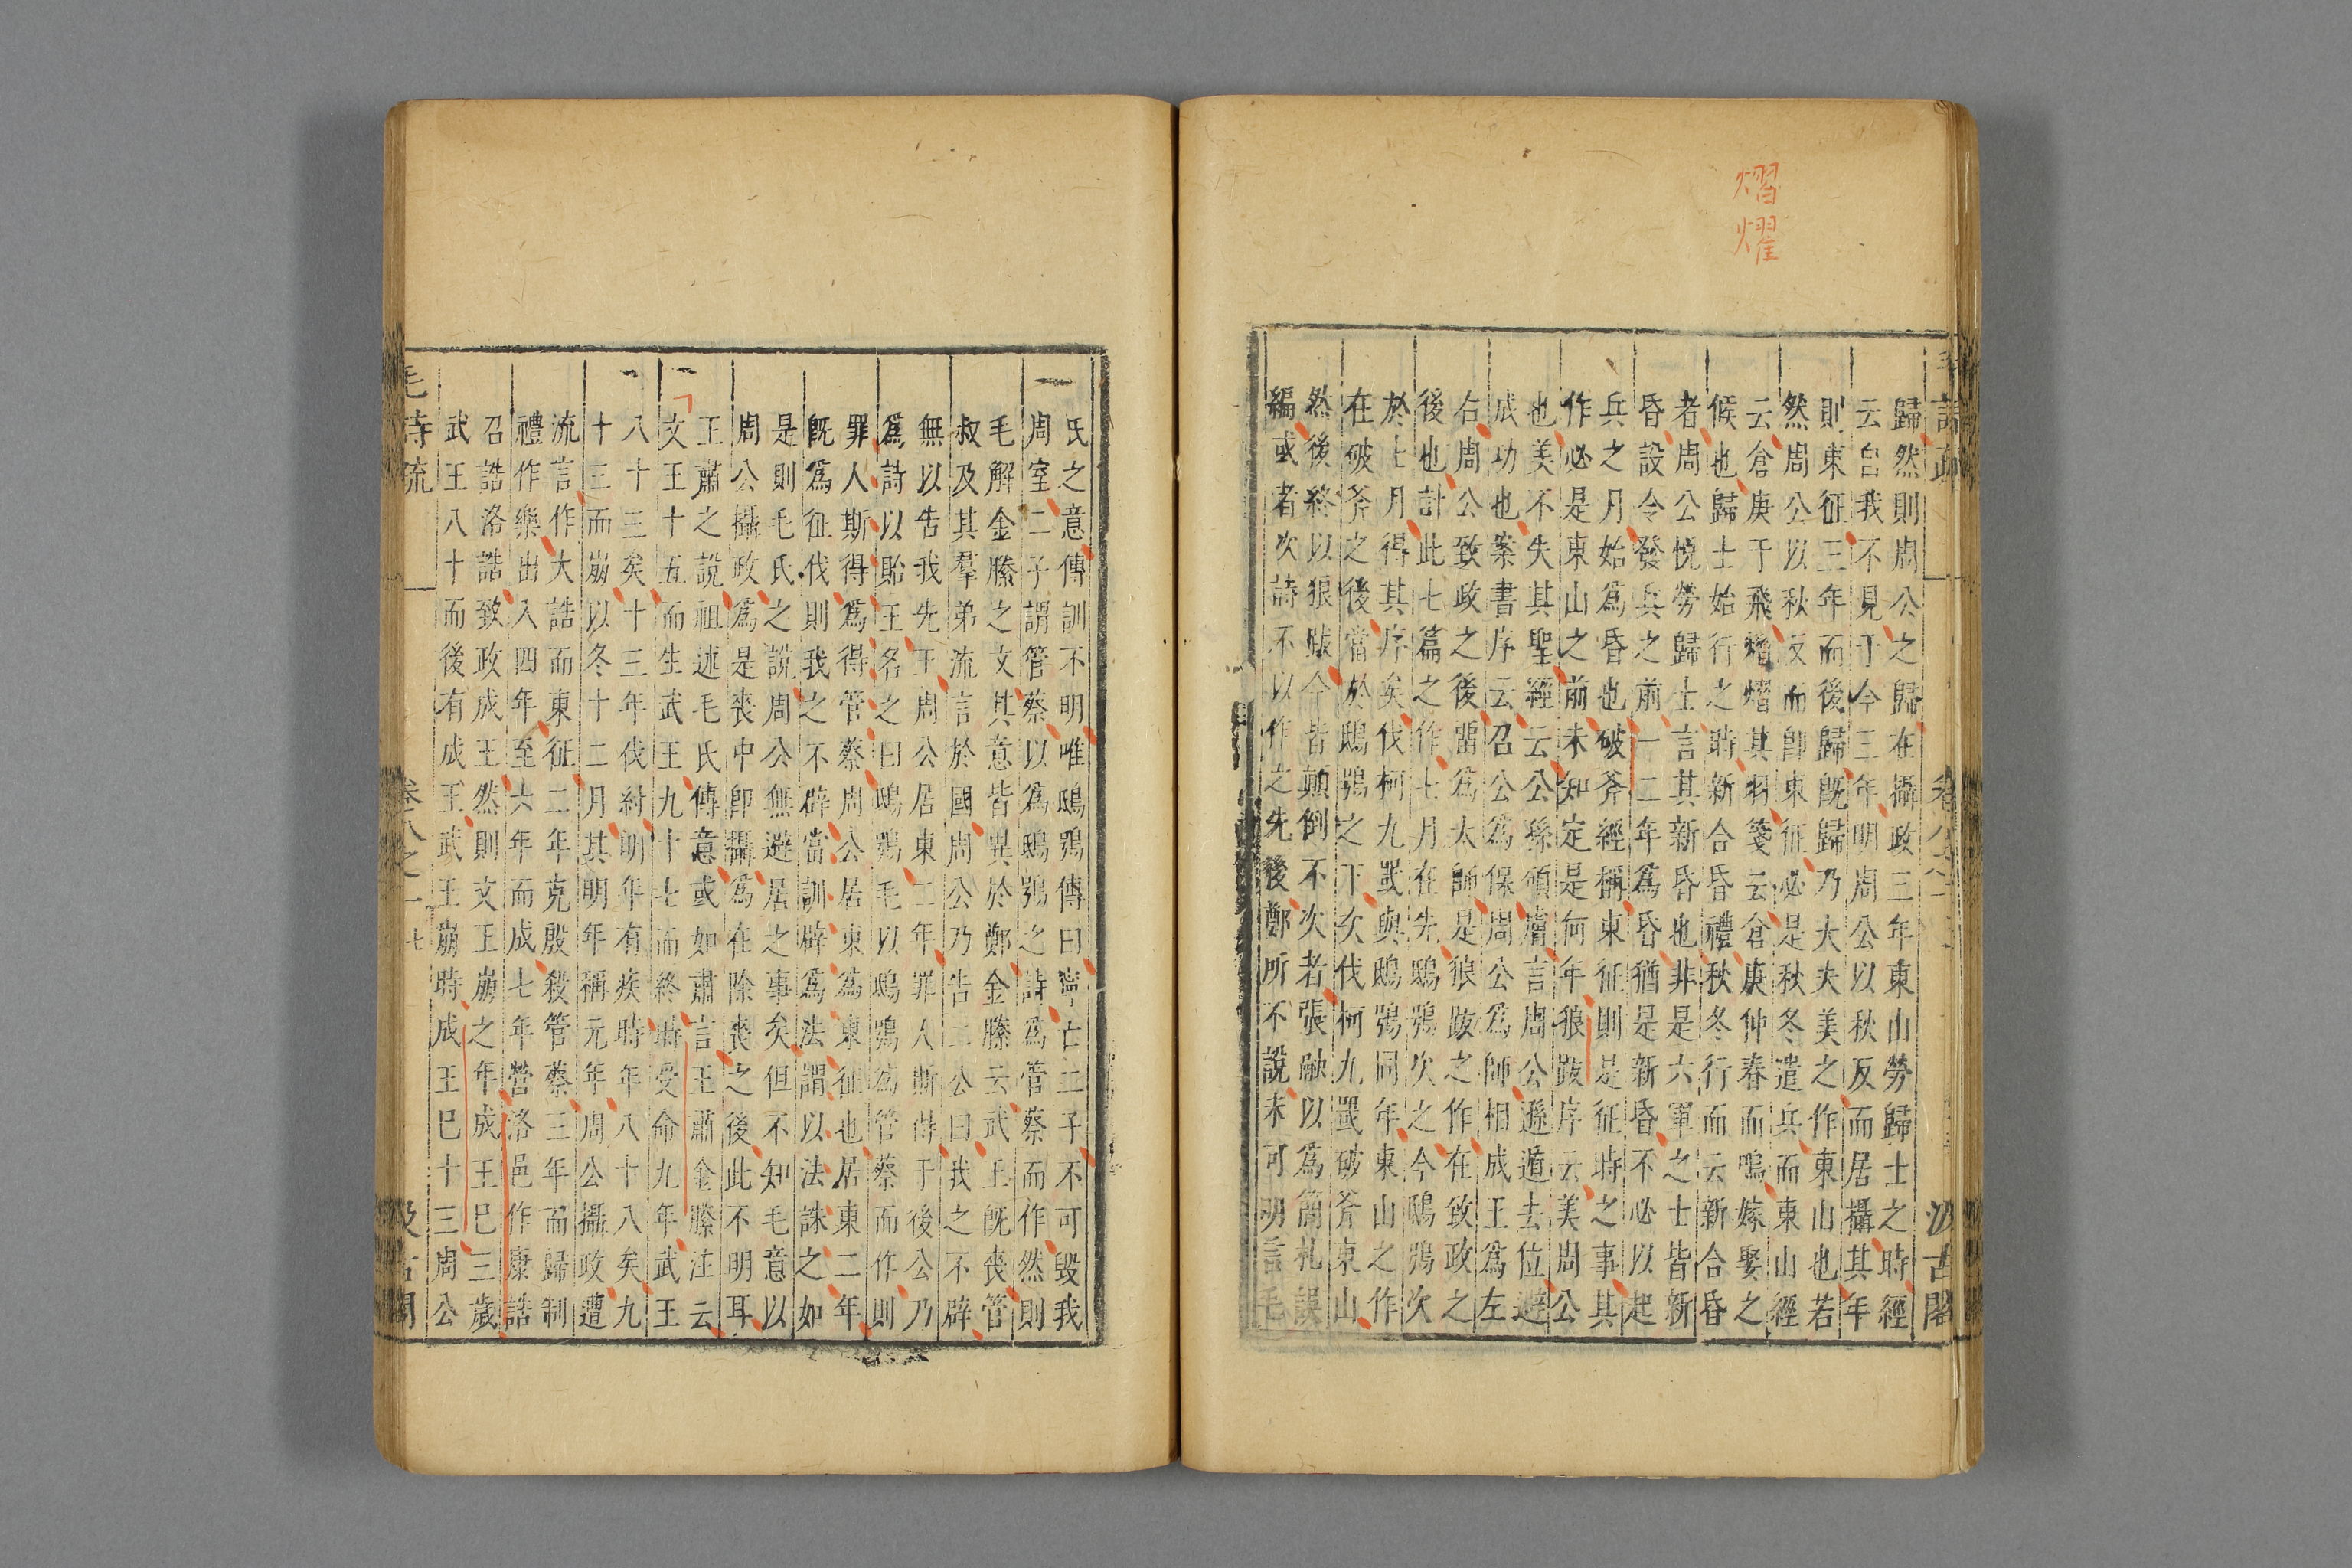 熠燿
毛詩疏
汲古閣
歸然則周公之歸在攝政三年東山勞歸士之時經
云自我不見于今三年明周公以秋反而居攝其年
則東征三年而後歸旣歸乃大夫美之作東山也若
然周公以秋反而卽東征必是秋冬遣兵而東山經
云倉庚于飛熠熠其羽箋云倉庚仲春而鳴嫁娶之
候也歸士始行之時新合昏禮秋冬行而云新合昏
者周公悅勞歸士言其新昏也非是六軍之士皆新
昏設令發兵之前一二年爲昏猶是新昏不必以起
兵之月始爲昏也破斧經稱東征則是征時之事其
作必是東山之前未知定是何年狼跋序云美周公
也美不失其聖經云公孫碩膚言周公遜遁去位避
成功也案書序云召公爲保周公爲師相成王爲左
右周公致政之後留爲太師是狼跋之作在致政之
後也計此七篇之作七月在先鴟鴞次之今鴟鴞次
於七月得其序矣伐柯九罭與鴟鴞同年東山之作
在破斧之後當於鴟鴞之下次伐柯九罭破斧東山
然後終以狼跋今皆顛倒不次者張融以爲簡札誤
編或者次詩不以作之先後鄭所不說未可明言毛
氏之意傳訓不明唯鴟鴞傳曰寧亡二子不可毀我
周室二子謂管蔡以爲鴟鴞之詩爲管蔡而作然則
毛解金縢之文其意皆異於鄭金縢云武王旣喪管
叔及其羣弟流言於國周公乃告二公曰我之不辟
無以告我先王周公居東二年罪人斯得于後公乃
爲詩以貽王名之曰鴟鴞毛以鴟鴞爲管蔡而作則
罪人斯得爲得管蔡周公居東爲東征也居東二年
旣爲征伐則我之不辟當訓辟爲法謂以法誅之如
是則毛氏之說周公無避居之事矣但不知毛意以
周公攝政爲是喪中卽攝爲在除喪之後此不明耳
王肅之說祖述毛氏傳意或如肅言王肅金縢注云
文王十五而生武王九十七而終時受命九年武王
八十三矣十三年伐紂明年有疾時年八十八矣九
十三而崩以冬十二月其明年稱元年周公攝政遭
流言作大誥而東征二年克殷殺管蔡三年而歸制
禮作樂出入四年至六年而成七年營洛邑作康誥
召誥洛誥致政成王然則文王崩之年成王已三歲
武王八十而後有成王武王崩時成王已十三周公
毛詩疏
卷八之一
七